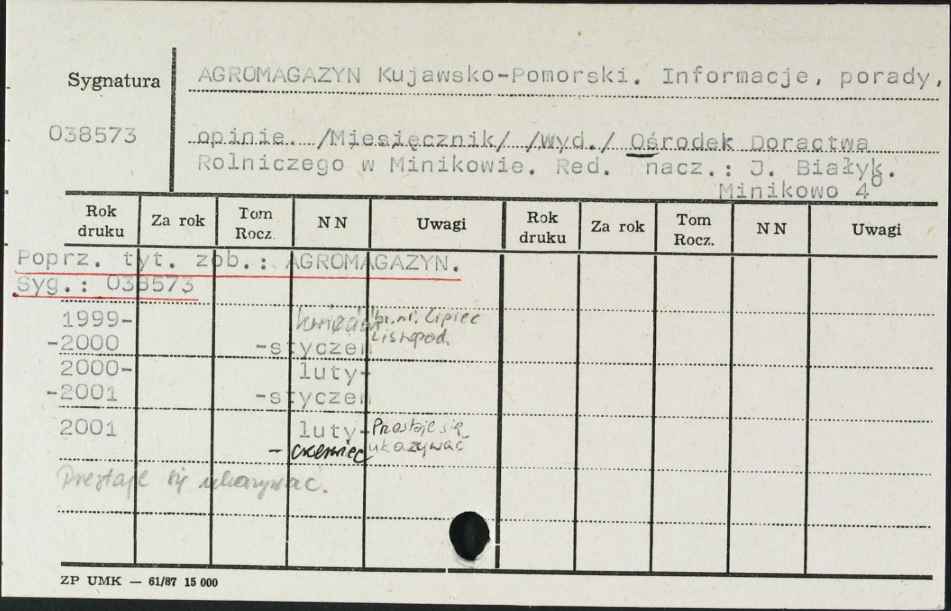 Sygnatura
AGROMAGAZYN Kujawsko-Pomorski. Informacje, porady,
038573
opinie. /Miesięcznik/ /Wyd./ Ośrodek Doractwa
Rolniczego w Minikowie. Red. nacz.: J. Białyk.
Minikowo 4°
Rok druku Za rok Tom Rocz. NN Uwagi Rok druku Za rok Tom Rocz. NN Uwagi
Poprz. tyt. zob.: AGROMAGAZYN.
Syg.: 038573
1999- kwiecień br.nr. Lipiec
Listopad.
-2000 -styczeń
2000- luty-
-2001 -styczeń
2001 luty- Przestaje się
- czerwiec ukazywać
Przestaje się ukazywać.
ZP UMK — 61/87 15 000